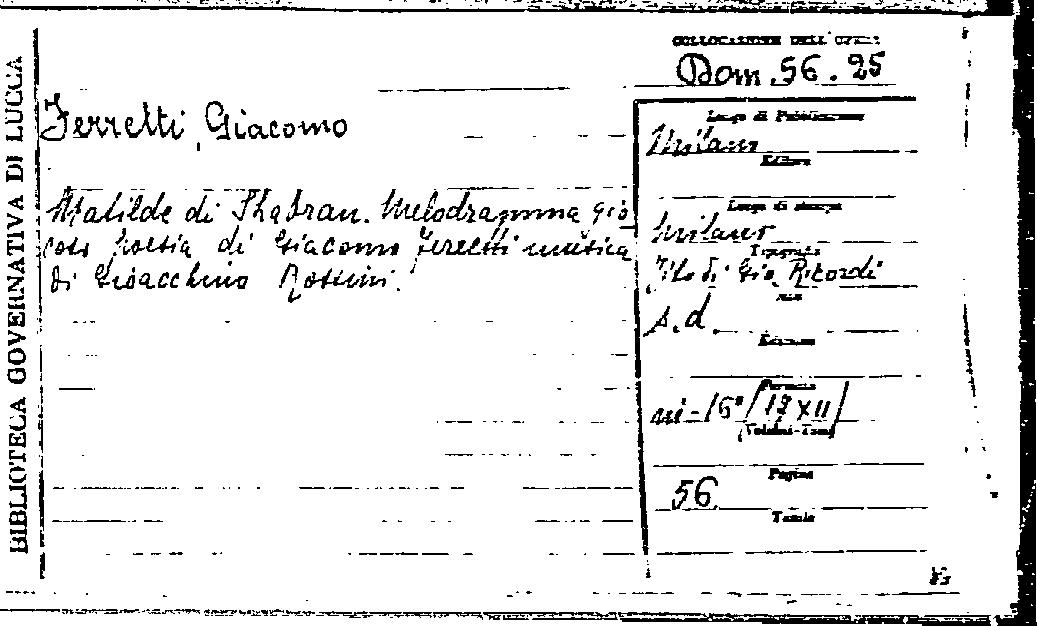 BIBLIOTECA GOVERNATIVA DI LUCCA
COLLOCAZIONE DELL'OPERA
Dom. 56. 25
Ferretti, Giacomo
Matilde di Shabran. Melodramma gio-
coso poesia di Giacomo Ferretti musica
di Gioacchino Rossini.
Luogo di Pubblicazione
Milano
Editore
Luogo di stampa
Milano
Tipografia
di Gio. Ricordi
Anno
s.d.
Edizione
Formato
in-16° (17 x 11)
(Volumi-Tomi)
Pagine
56
Tavole